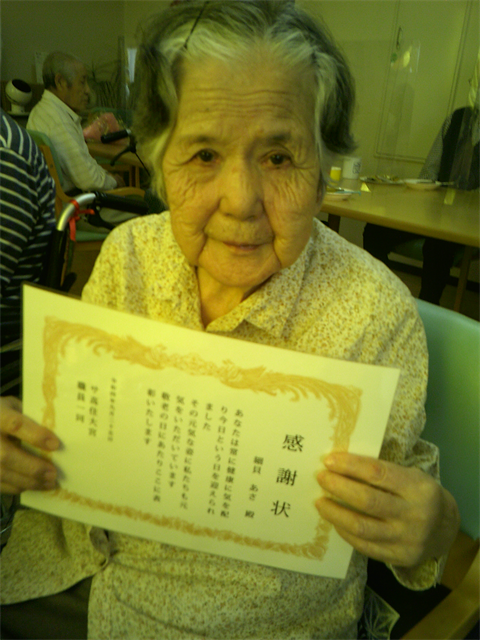 感謝状
細貝 あさ 殿
あなたは常に健康に気を配
り今日という日を迎えられ
ました
その元気な姿に私たちも元
気をいただいています
敬老の日にあたりここに表
彰いたします
令和四年九月二十日
職員一同